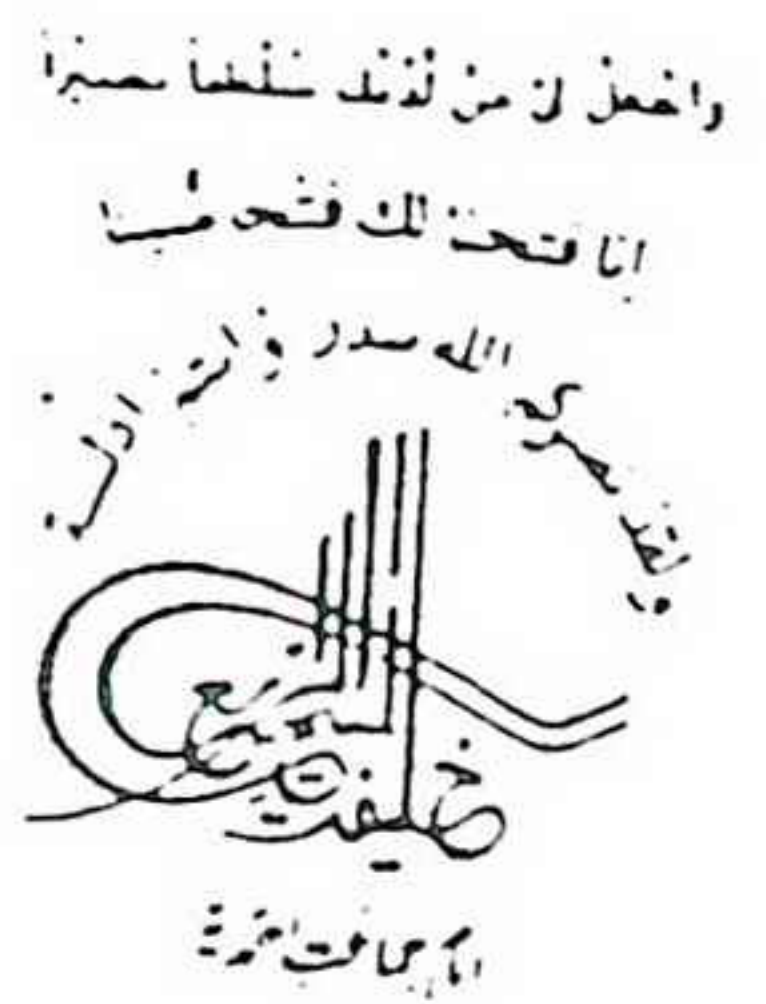 واجعل لي من لدنك سلطنا نصيرا
انا فتحنا لك فتحا مبينا
ولقد نصركم الله ببدر و انتم اذلة
خليفة المسيح الرابع
امام جماعت احمدية